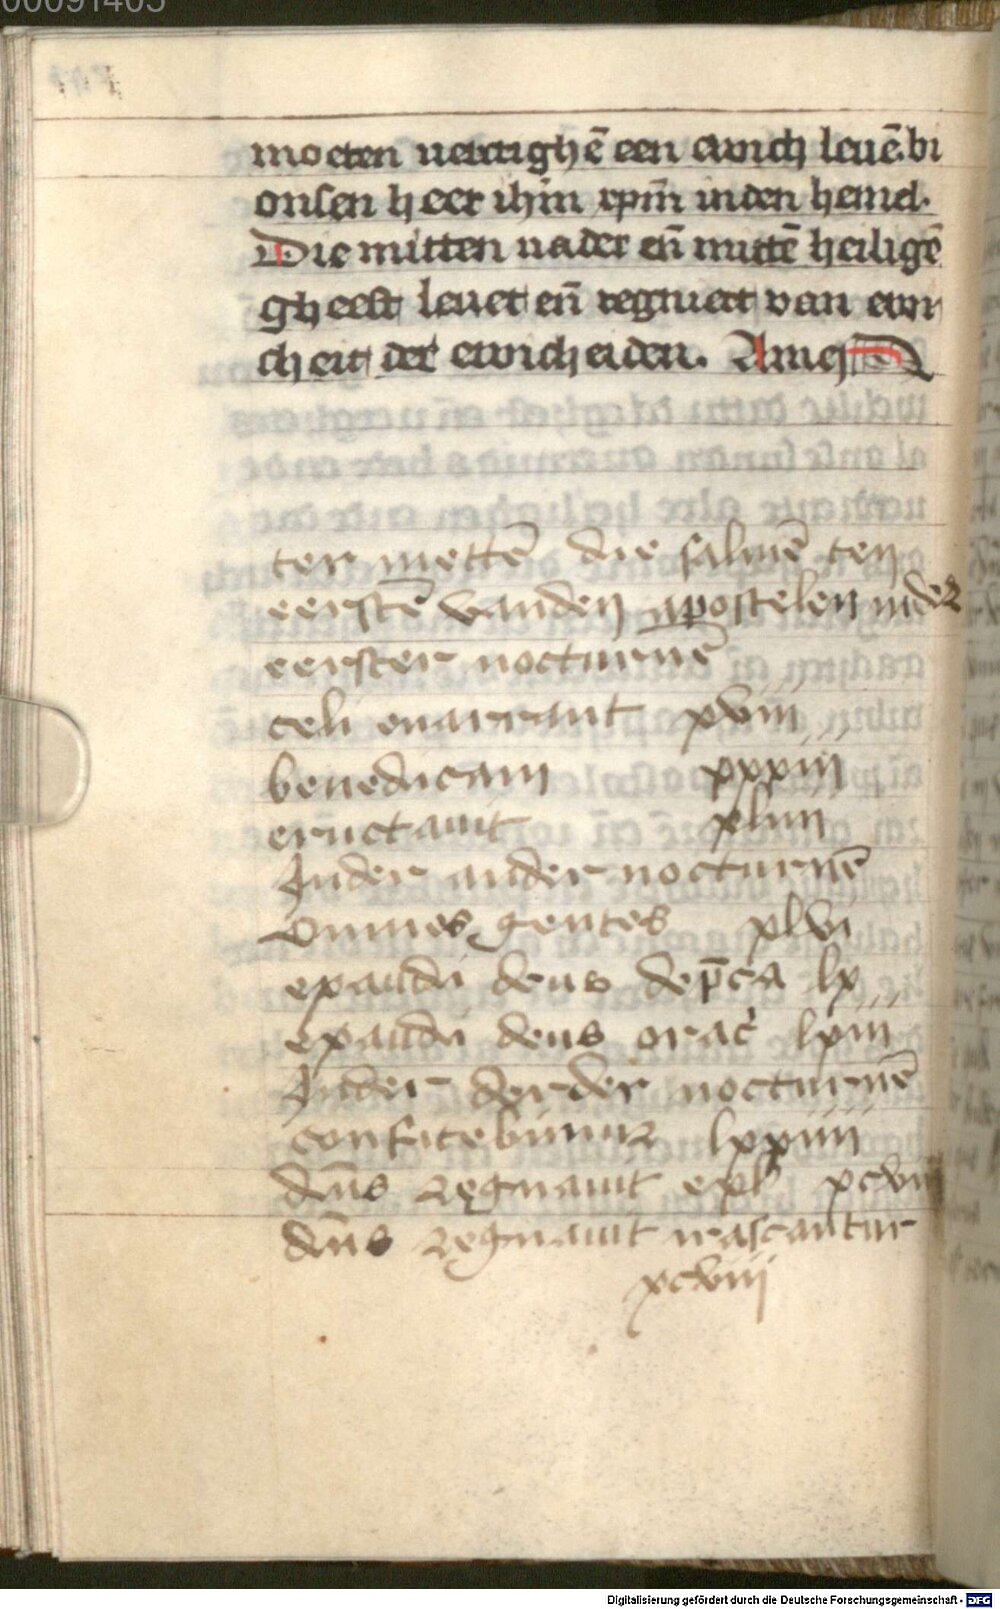 00091405
moeten uercrighē een ewich leuē bi
onsen heer ihm xpm̄ inden hemel.
Die mitten uader en̄ mittē heiligē
gheest leuet en̄ regniert van ewi
cheit der ewicheiden. Amen
ter mettē die salmē ten
eerstē vanden apostelen inder
eerster nocturnē
celi enarrant xviii
benedicam xxxiii
eructauit xliiii
Inder ander nocturnē
omnes gentes xlvi
exaudi deus dep̄ca lx
exaudi deus orac̄ lxiii
Inder derder nocturnē
confitebimur lxxiiii
dn̄s regnauit exl
dn̄s regnauit irascantur
xcviii
Digitalisierung gefördert durch die Deutsche Forschungsgemeinschaft - DFG